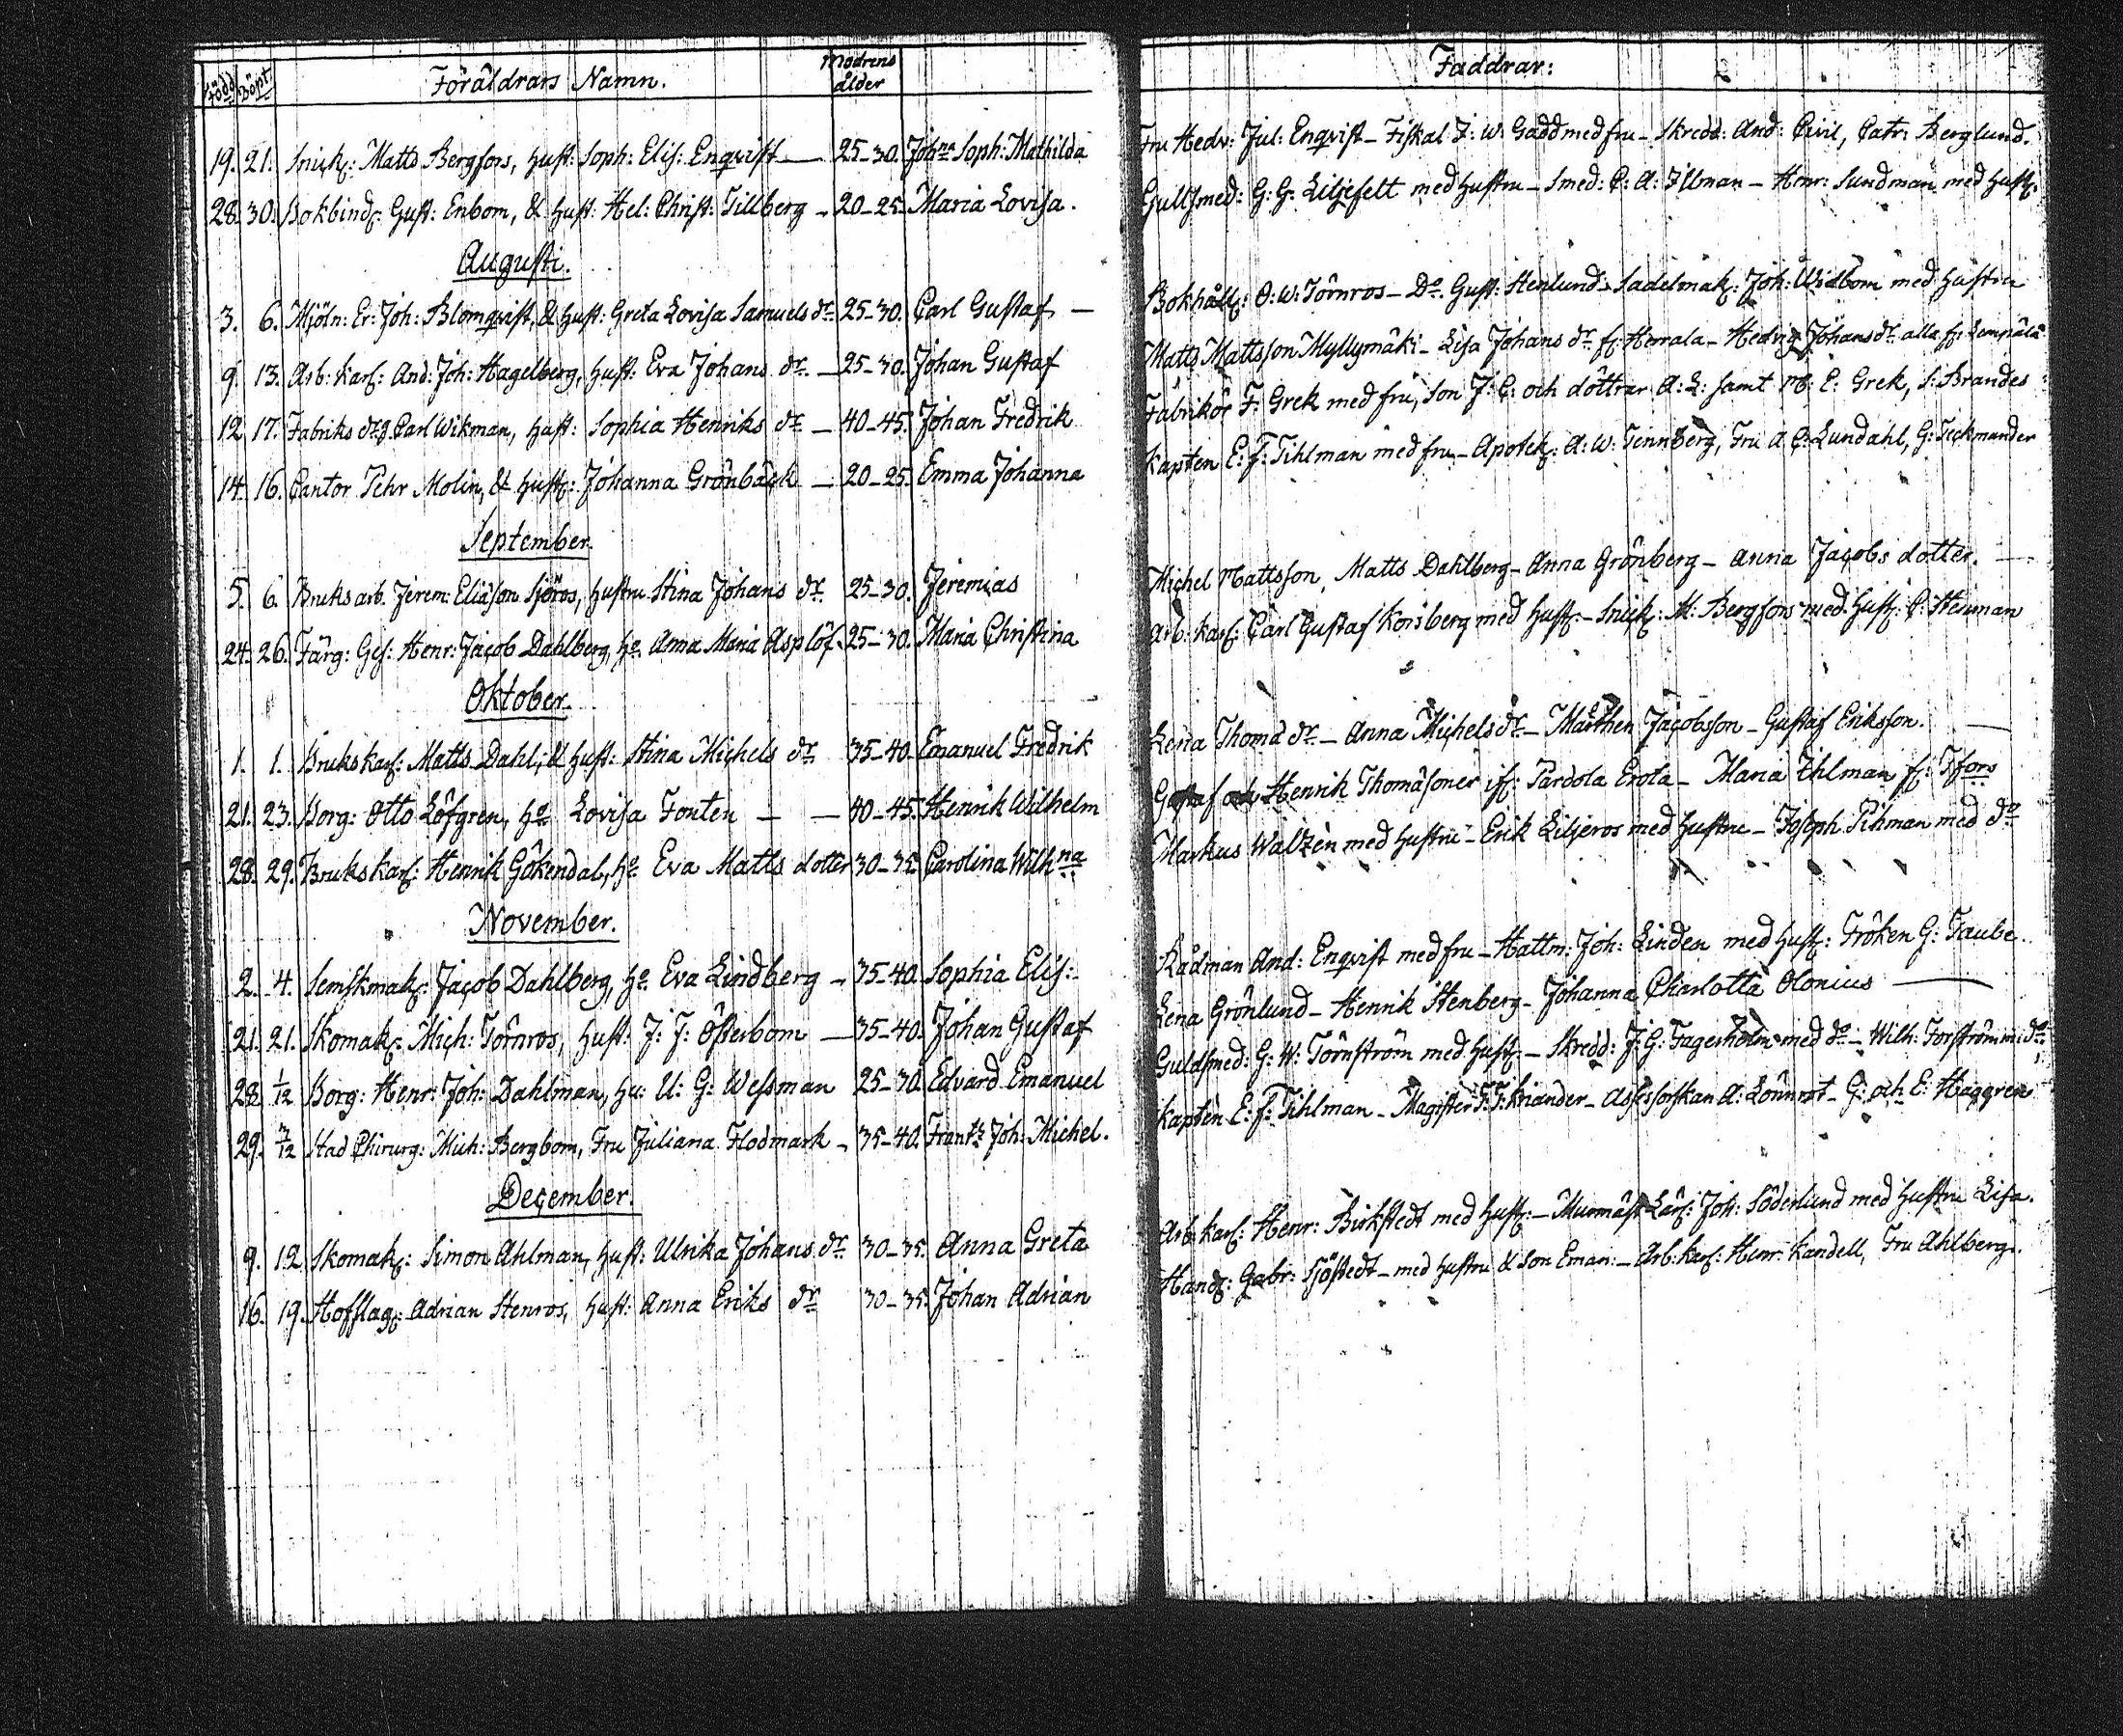 Född Döpt. Föräldrars Namn. Modrens ålder
19. 21. Snick: Matts Bergfors, hust: Soph: Elis: Enqvist — 25-30. Joh:na Soph: Mathilda
28. 30. Bokbind: Gust: Enbom, & hust: Hel: Christ: Tillberg - 20-25. Maria Lovisa.
Augusti.
3. 6. Mjöln: Er: Joh: Blomqvist, & hust: Greta Lovisa Samuels dr 25-30. Carl Gustaf —
9. 13. Arb: karl: And: Joh: Hagelberg, hust: Eva Johans dr. — 25-30. Johan Gustaf
12 17. Fabriks drg. Carl Wikman, hust: Sophia Henriks dr — 40-45. Johan Fredrik
14. 16. Cantor Pehr Molin, & hust: Johanna Grönbäck — 20-25. Emma Johanna
September.
5. 6. Bruks arb. Jerem: Eliasson Sjöros, hustru Stina Johans dr. 25-30. Jeremias
24. 26. Färg: Ges: Henr: Jacob Dahlberg, ho Anna Maria Asplöf. 25-30. Maria Christina
Oktober.
1. 1. Bruks karl: Matts Dahl, & hust: Stina Michels dr 35-40. Emanuel Fredrik
21. 23. Borg: Otto Löfgren, ho Lovisa Fonten — — 40-45. Henrik Wilhelm
28. 29. Bruks karl: Henrik Gökendal, ho Eva Matts dotter 30-35. Carolina Wilh:na
November.
2. 4. Semskmak: Jacob Dahlberg, ho. Eva Lindberg - 35-40. Sophia Elis:
21. 21. Skomak: Mich: Törnros, hust: J: J: Österbom — 35-40. Johan Gustaf
28. 1/12 Borg: Henr: Joh: Dahlman, hu: U: G: Wessman 25-30. Edvard Emanuel
29. 3/12 Stad Chirurg: Mich: Bergbom, Fru Juliana Flodmark - 35-40. Frantz Joh: Michel.
December.
9. 12. Skomak: Simon Ahlman, hust: Ulrika Johans dr. 30-35. Anna Greta
16. 19. Hofslag: Adrian Stenros, hust: Anna Eriks dr 30-35. Johan Adrian
Faddrar:
Fru Hedv: Jul: Enqvist - Fiskal J: W: Gadd med fru - Skredd: And: Civil, Catr: Berglund.
Gullsmed: G: G: Liljefelt med hustru - Smed: C: A: Illman - Henr: Sundman med hust:
Bokhåll: O: W: Törnros - Do. Gust: Stenlund - Sadelmak: Joh: Widbom med hustru
Matts Mattsson Myllymäki - Lisa Johans dr fr: Herrala - Hedvig Johans dr. alla fr: Lempälä
Fabrikör F: Grek med fru, Son J: C: och döttrar A: L: samt M: E: Grek, S: Brandes
Kapten E: F: Tihlman med fru - Apotek: A: W: Tennberg, Fru A C: Lundahl, G: Teckmander
Michel Mattsson, Matts Dahlberg - Anna Grönberg - Anna Jacobs dotter. —
Arb: karl: Carl Gustaf Korsberg med hust: - Snick: M: Bergfors med hust: C: Stenman
Lena Thoma dr - Anna Michels dr - Mårthen Jacobsson - Gustaf Eriksson. —
Gustaf och Henrik Thomasoner if: Pardola Erola - Maria Ihlman fr: Tfors
Markus Walzen med hustru - Erik Liljeros med hustru - Joseph Pihman med do
Rådman And: Enqvist med fru - Hattm: Joh: Linden med hust: Fröken G: Taube.
Lena Grönlund - Henrik Stenberg - Johanna Charlotta Olonius —
Guldsmed: G: W: Törnström med hust: - Skredd: J: G: Fagerholm med do - Wilh: Forström m: do
Kapten E: F: Tihlman - Magister F: F: Kriander - Assessorskan A: Lönnrot - G: och E: Haggren
Arb: karl: Henr: Birkstedt med hust: - Murmäst Lärl: Joh: Söderlund med hustru Lisa.
Handl: Gabr: Sjöstedt - med hustru & son Eman: - Arb: karl: Henr: Kandell, Fru Ahlberg.